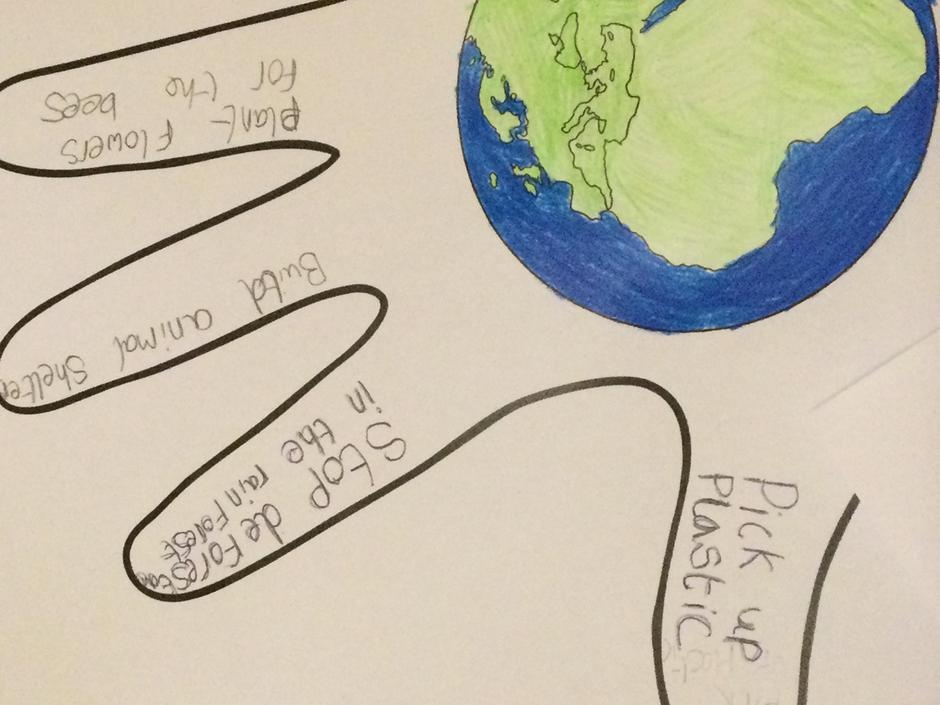 plant flowers
for the bees
Build animal shelter
Stop deforestation
in the rainforest
Pick up
Plastic